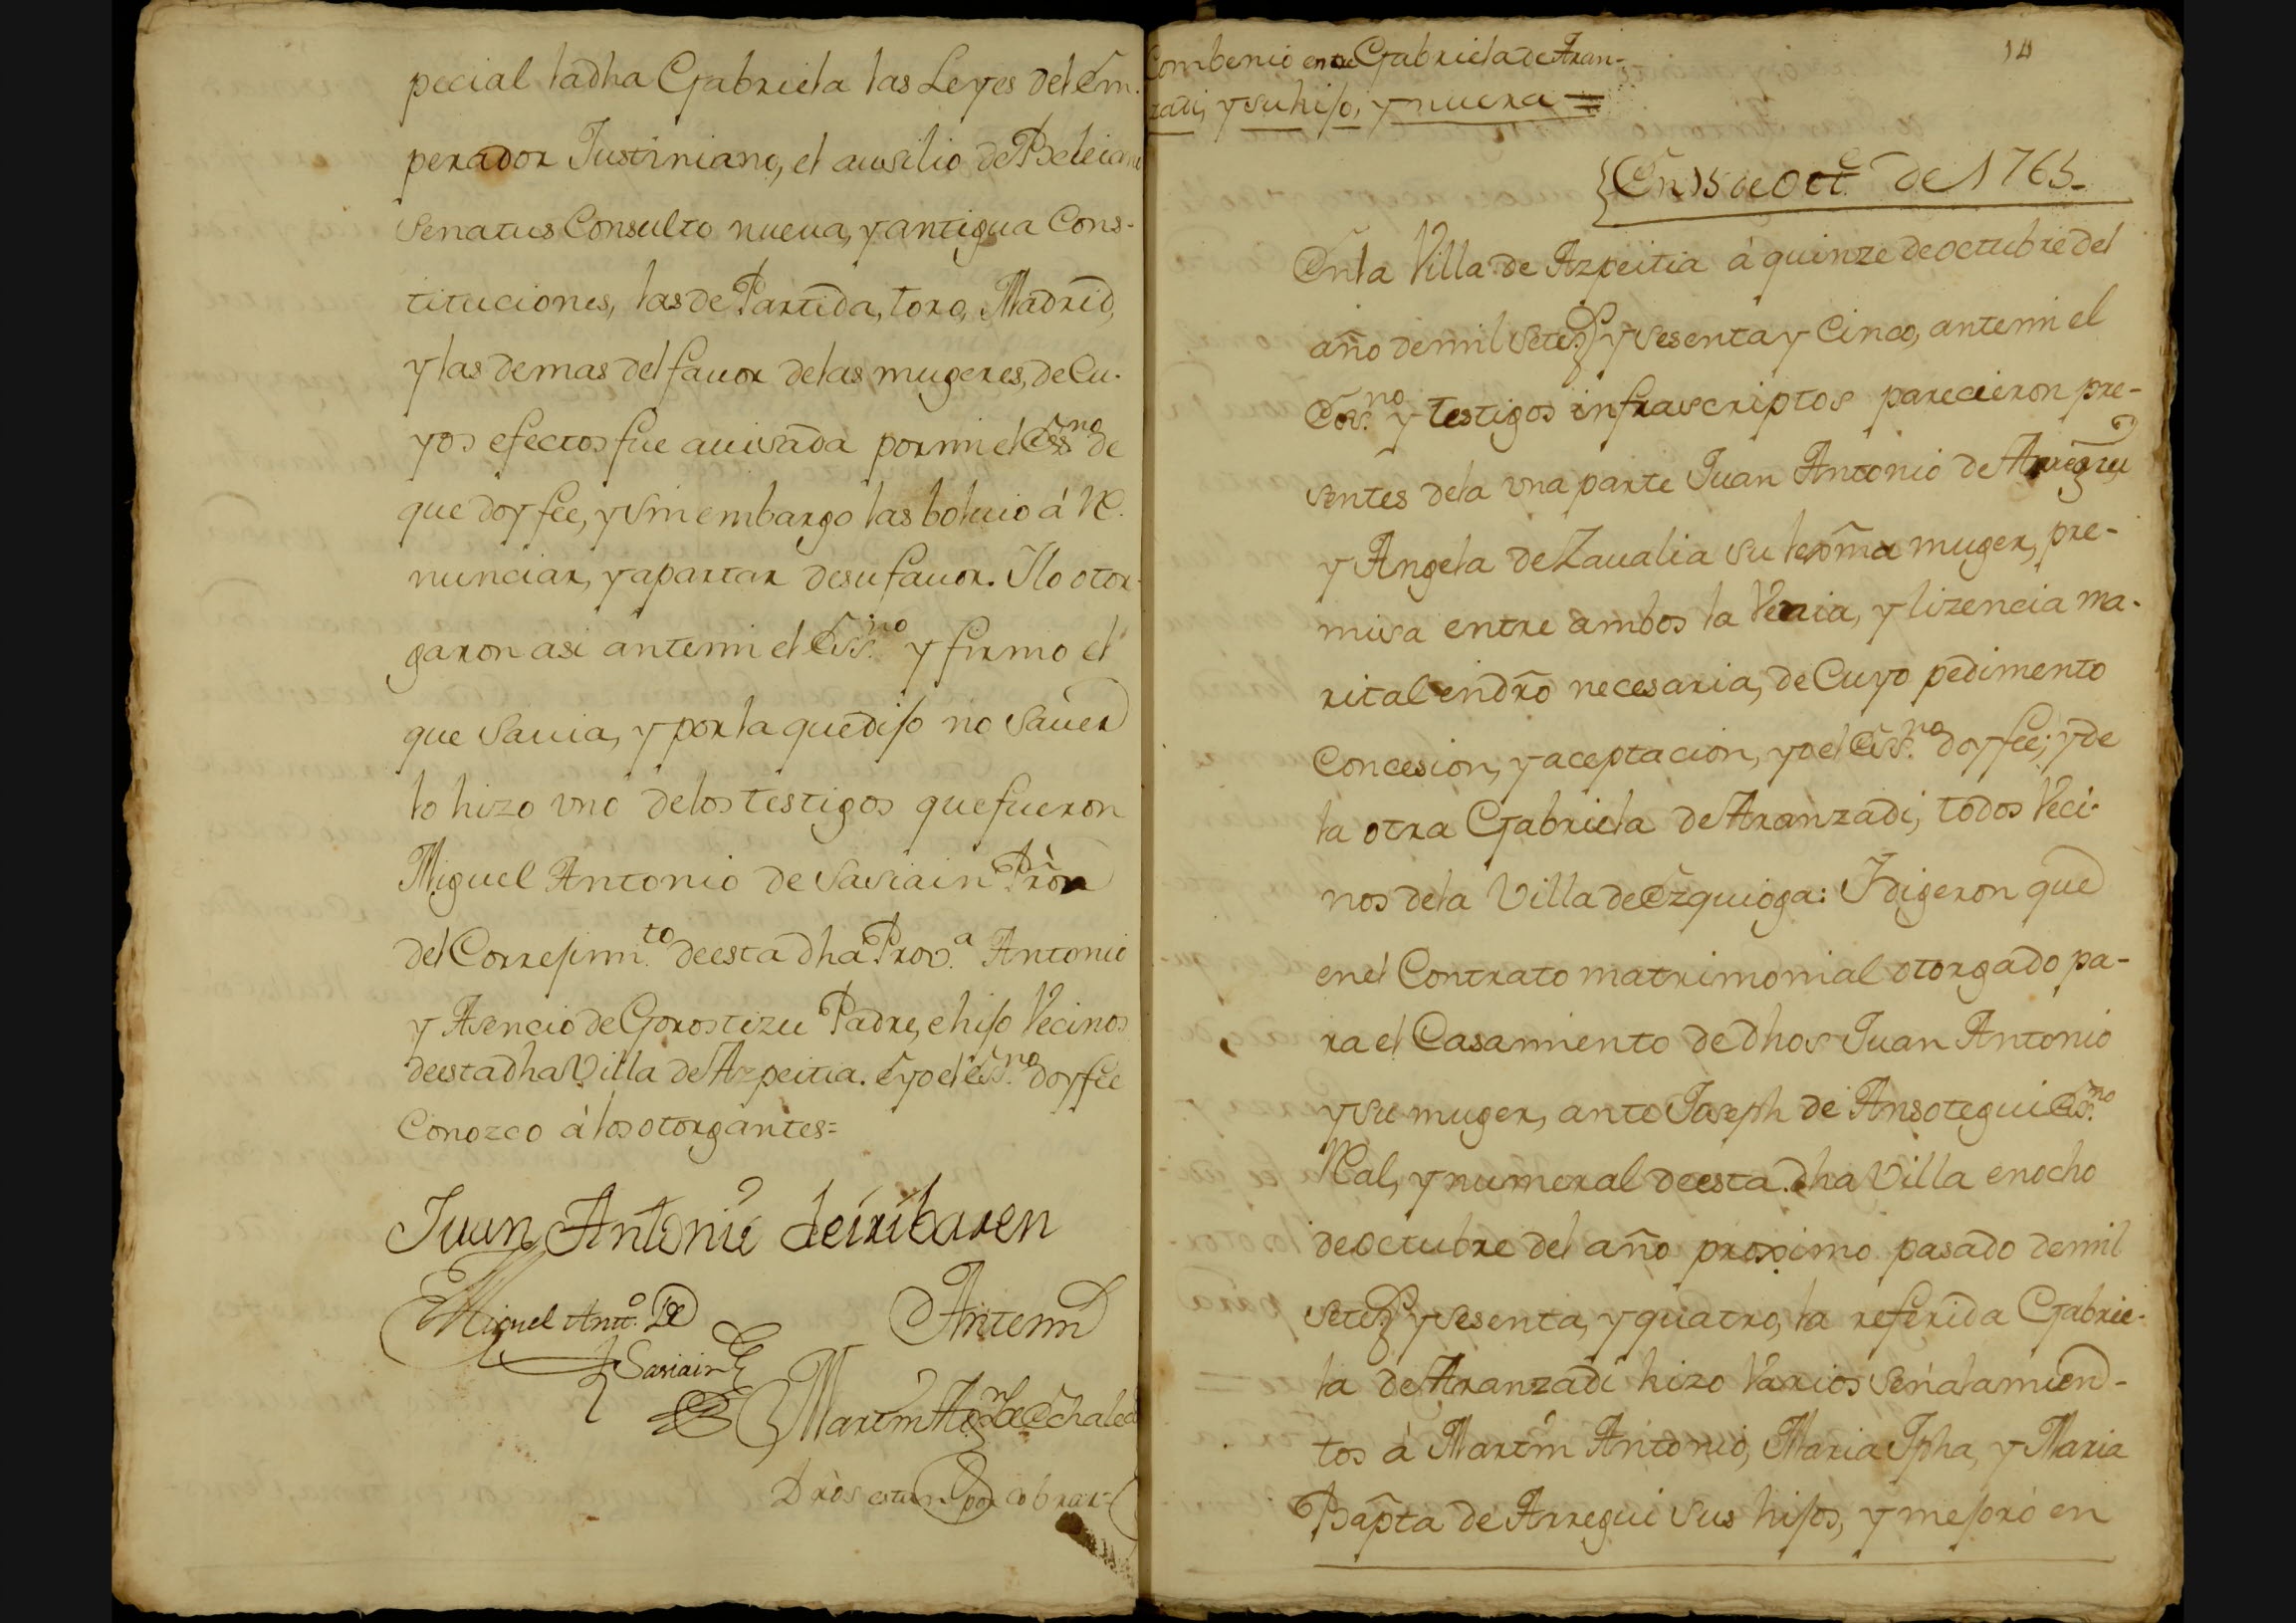 pecial la dha Gabriela las Leyes del Em-
perador Justiniano, el ausilio de Beleiano
Senatus Consulto nueua, y antigua Cons-
tituciones, las de Partida, toro, Madrid,
y las demas del fauor de las mugeres, de Cu-
yos efectos fue auisada por mi el Ess.no de
que doy fee, y sin embargo las boluio á Re-
nunciar, y apartar de su fauor. I lo otor-
garon asi antemi el Ess.no y firmo el
que sauia, y por la que dijo no sauer
lo hizo vno de los testigos que fueron
Miguel Antonio de Sasiain Pròr
del Correjim.to de esta dha Prov.a Antonio
y Asencio de Gorostizu Padre, e hijo Vecinos
de esta dha Villa de Azpeitia. e yo el ess.no doy fee
Conozco á los otorgantes=
Juan Antonio de iribaren
Miguel Antt.o De
Sasiain
Antemi
Martin
Dròs estan por cobrar
Combenio entre Gabriela de Aran-
zadi, y su hijo, y nuera =
14
En 15 de Oct.e de 1765_
En la Villa de Azpeitia á quinze de octubre del
año de mil setez.s y sesenta y Cinco, antemi el
Ess.no y testigos infrascriptos parecieron pre-
sentes dela vna parte Juan Antonio de Arregui
y Angela de Zaualia su lexma muger, pre-
misa entre ambos la Venia, y lizencia ma-
rital en dro necesaria, de Cuyo pedimento
Concesion, y aceptacion, yo el Ess.no doy fee; y de
la otra Gabriela de Aranzadi, todos Veci-
nos dela Villa de Ezquioga: I digeron que
en el Contrato matrimonial otorgado pa-
ra el Casamiento de dhos Juan Antonio
y su muger, ante Joseph de Ansotegui Ess.no
Real, y numeral de esta dha Villa en ocho
de octubre del año proximo pasado de mil
setez.s y sesenta, y quatro, la referida Gabrie-
la de Aranzadi hizo Varios señalamien-
tos á Martin Antonio, Maria Jpha, y Maria
Bapta de Arregui sus hijos, y mejoró en